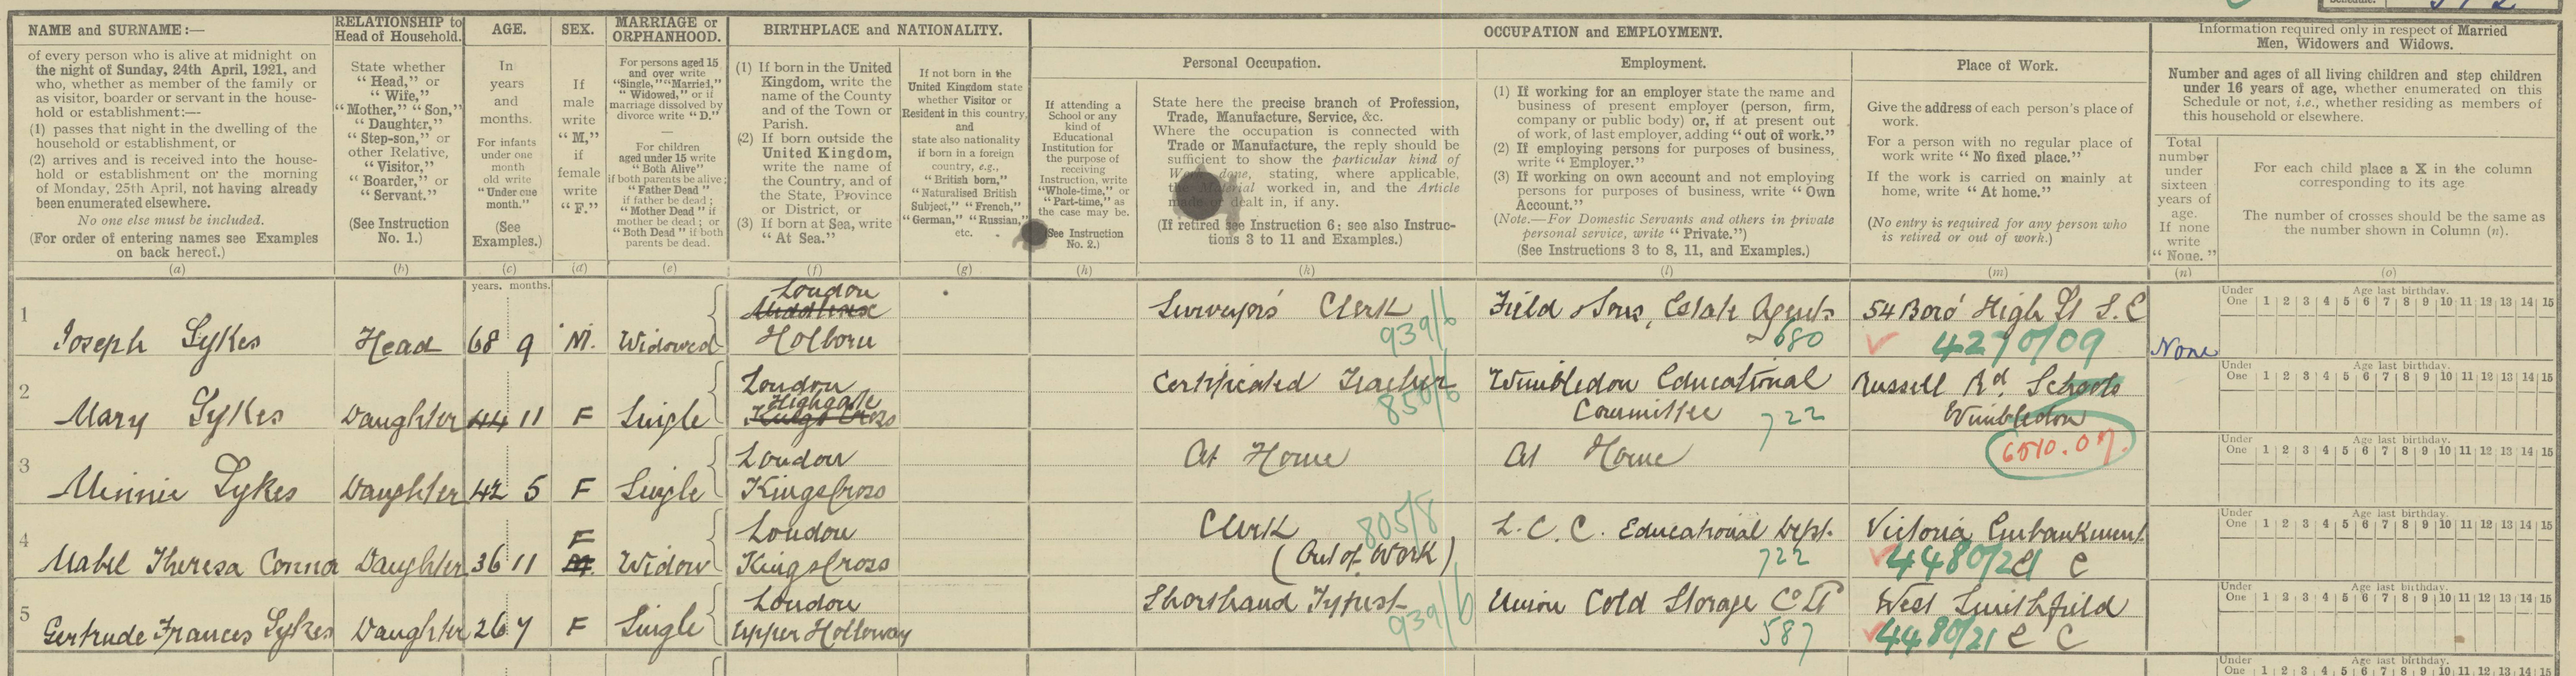 Schedule.
NAME and SURNAME:—
of every person who is alive at midnight on
the night of Sunday, 24th April, 1921, and
who, whether as member of the family or
as visitor, boarder or servant in the house-
hold or establishment:—
(1) passes that night in the dwelling of the
household or establishment, or
(2) arrives and is received into the house-
hold or establishment on the morning
of Monday, 25th April, not having already
been enumerated elsewhere.
No one else must be included.
(For order of entering names see Examples
on back hereof.)
(a)
RELATIONSHIP to
Head of Household.
State whether
"Head," or
"Wife,"
"Mother," "Son,"
"Daughter,"
"Step-son," or
other Relative,
"Visitor,"
"Boarder," or
"Servant."
(See Instruction
No. 1.)
(b)
AGE.
In
years
and
months.
For infants
under one
month
old write
"Under one
month."
(See
Examples.)
(c)
SEX.
If
male
write
"M,"
if
female
write
"F."
(d)
MARRIAGE or
ORPHANHOOD.
For persons aged 15
and over write
"Single," "Married,"
"Widowed," or if
marriage dissolved by
divorce write "D."
—
For children
aged under 15 write
"Both Alive"
if both parents be alive;
"Father Dead"
if father be dead;
"Mother Dead" if
mother be dead; or
"Both Dead" if both
parents be dead.
(e)
BIRTHPLACE and NATIONALITY.
(1) If born in the United
Kingdom, write the
name of the County
and of the Town or
Parish.
(2) If born outside the
United Kingdom,
write the name of
the Country, and of
the State, Province
or District, or
(3) If born at Sea, write
"At Sea."
(f)
If not born in the
United Kingdom state
whether Visitor or
Resident in this country,
and
state also nationality
if born in a foreign
country, e.g.,
"British born,"
"Naturalised British
Subject," "French,"
"German," "Russian,"
etc.
(g)
OCCUPATION and EMPLOYMENT.
If attending a
School or any
kind of
Educational
Institution for
the purpose of
receiving
Instruction, write
"Whole-time," or
"Part-time," as
the case may be.
(See Instruction
No. 2.)
(h)
Personal Occupation.
State here the precise branch of Profession,
Trade, Manufacture, Service, &c.
Where the occupation is connected with
Trade or Manufacture, the reply should be
sufficient to show the particular kind of
Work done, stating, where applicable,
the Material worked in, and the Article
made or dealt in, if any.
(If retired see Instruction 6; see also Instruc-
tions 3 to 11 and Examples.)
(k)
Employment.
(1) If working for an employer state the name and
business of present employer (person, firm,
company or public body) or, if at present out
of work, of last employer, adding "out of work."
(2) If employing persons for purposes of business,
write "Employer."
(3) If working on own account and not employing
persons for purposes of business, write "Own
Account."
(Note.—For Domestic Servants and others in private
personal service, write "Private.")
(See Instructions 3 to 8, 11, and Examples.)
(l)
Place of Work.
Give the address of each person's place of
work.
For a person with no regular place of
work write "No fixed place."
If the work is carried on mainly at
home, write "At home."
(No entry is required for any person who
is retired or out of work.)
(m)
Information required only in respect of Married
Men, Widowers and Widows.
Number and ages of all living children and step children
under 16 years of age, whether enumerated on this
Schedule or not, i.e., whether residing as members of
this household or elsewhere.
Total
number
under
sixteen
years of
age.
If none
write
"None."
(n)
For each child place a X in the column
corresponding to its age
The number of crosses should be the same as
the number shown in Column (n).
(o)
years. months.
1
Joseph Sykes Head 68 9 M. Widowed
London
Middlesex
Holborn
Surveyors' Clerk
939/6
Field & Sons, Estate Agents
680
54 Boro' High St S.E
4270/09
None
Under One Age last birthday.
1 2 3 4 5 6 7 8 9 10 11 12 13 14 15
2
Mary Sykes Daughter 44 11 F Single
London
Highgate
Kings Cross
Certificated Teacher
850/6
Wimbledon Educational
Committee 722
Russell Rd. Schools
Wimbledon
6510.07.
Under One Age last birthday.
1 2 3 4 5 6 7 8 9 10 11 12 13 14 15
3
Minnie Sykes Daughter 42 5 F Single
London
Kings Cross
At Home
At Home
Under One Age last birthday.
1 2 3 4 5 6 7 8 9 10 11 12 13 14 15
4
Mabel Theresa Connor Daughter 36 11 F M. Widow
London
Kings Cross
Clerk 805/8
(Out of Work)
L.C.C. Educational Dept.
722
Victoria Embankment
4480/21 E C
Under One Age last birthday.
1 2 3 4 5 6 7 8 9 10 11 12 13 14 15
5
Gertrude Frances Sykes Daughter 26 7 F Single
London
Upper Holloway
Shorthand Typist
939/6
Union Cold Storage Co Lt
587
West Smithfield
4480/21 E C
Under One Age last birthday.
1 2 3 4 5 6 7 8 9 10 11 12 13 14 15
Under One Age last birthday.
1 2 3 4 5 6 7 8 9 10 11 12 13 14 15